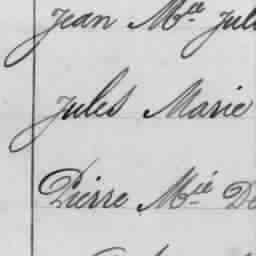 Jean Mee Jul
Jules Marie
Pierre Mié De